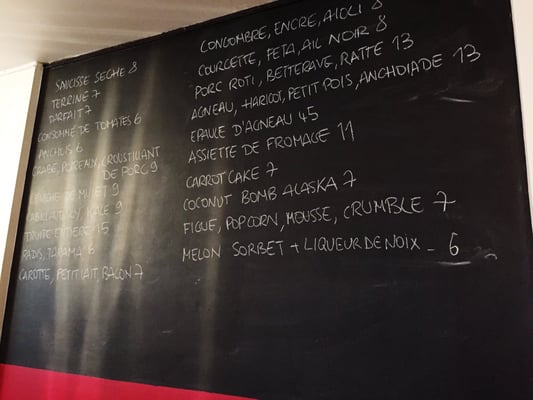 SAUCISSE SECHE 8
TERRINE 7
PARFAIT 7
CONSOMMÉ DE TOMATES 6
ANCHOIS 6
CRABE, POIREAUX, CROUSTILLANT
DE PORC 9
DE MULET 9
CABILLAUD, KALE 9
ENTIERE 15
RADIS, TARAMA 6
CAROTTE, PETIT LAIT, BACON 7
CONCOMBRE, ENCRE, AIOLI 8
COURGETTE, FETA, AIL NOIR 8
PORC ROTI, BETTERAVE, RATTE 13
AGNEAU, HARICOT, PETIT POIS, ANCHOIADE 13
EPAULE D'AGNEAU 45
ASSIETTE DE FROMAGE 11
CARROT CAKE 7
COCONUT BOMB ALASKA 7
FIGUE, POPCORN, MOUSSE, CRUMBLE 7
MELON SORBET + LIQUEUR DE NOIX - 6